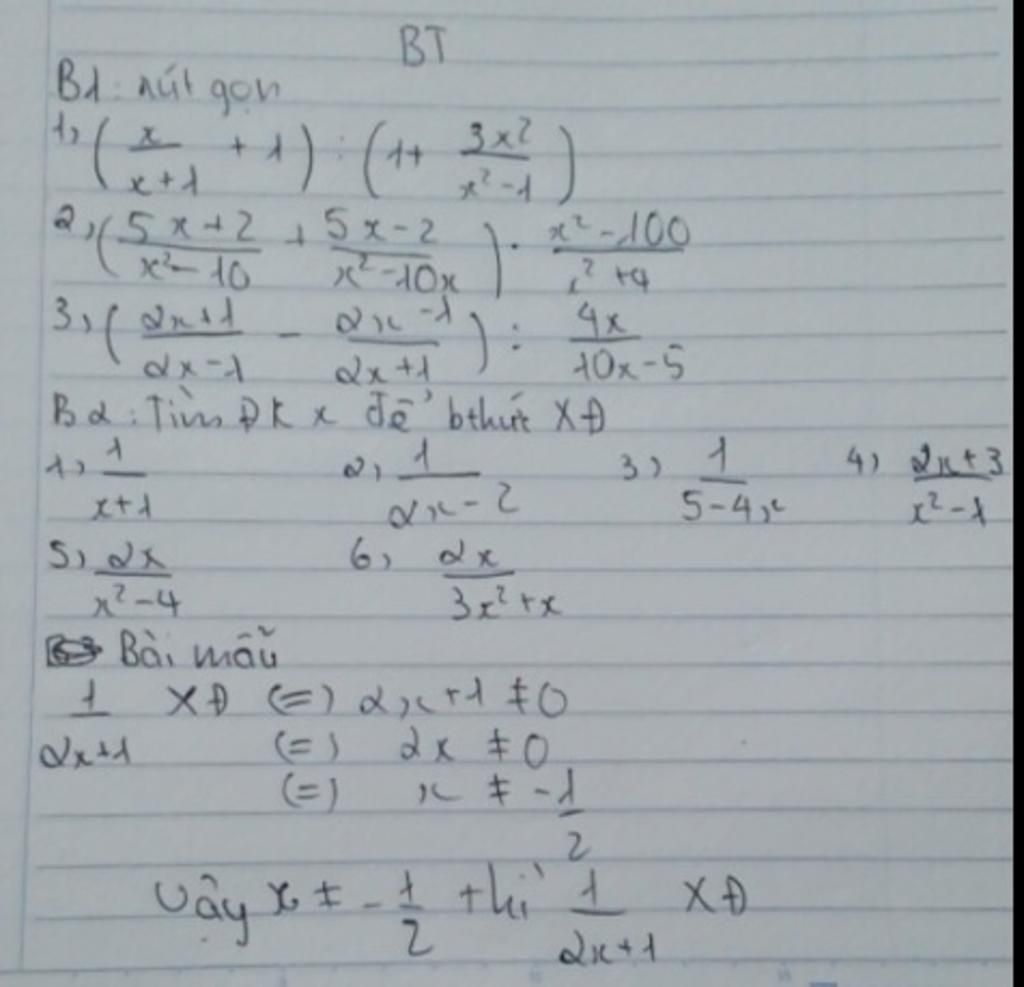 BT
B1: rút gọn
1, (x/(x+1) + 1) : (1 + 3x²/(x²-1))
2, ((5x+2)/(x²-10) + (5x-2)/(x²-10x)) · (x²-100)/(x²+4)
3, ((2x+1)/(2x-1) - (2x-1)/(2x+1)) : 4x/(10x-5)
B2: Tìm ĐK x để bthức XĐ
1, 1/(x+1) 2, 1/(2x-2) 3, 1/(5-4x) 4, (2x+3)/(x²-1)
5, 2x/(x²-4) 6, 2x/(3x²+x)
Bài mẫu
1/(2x+1) XĐ (=) 2x+1 ≠ 0
(=) 2x ≠ 0
(=) x ≠ -1/2
Vậy x ≠ -1/2 thì 1/(2x+1) XĐ